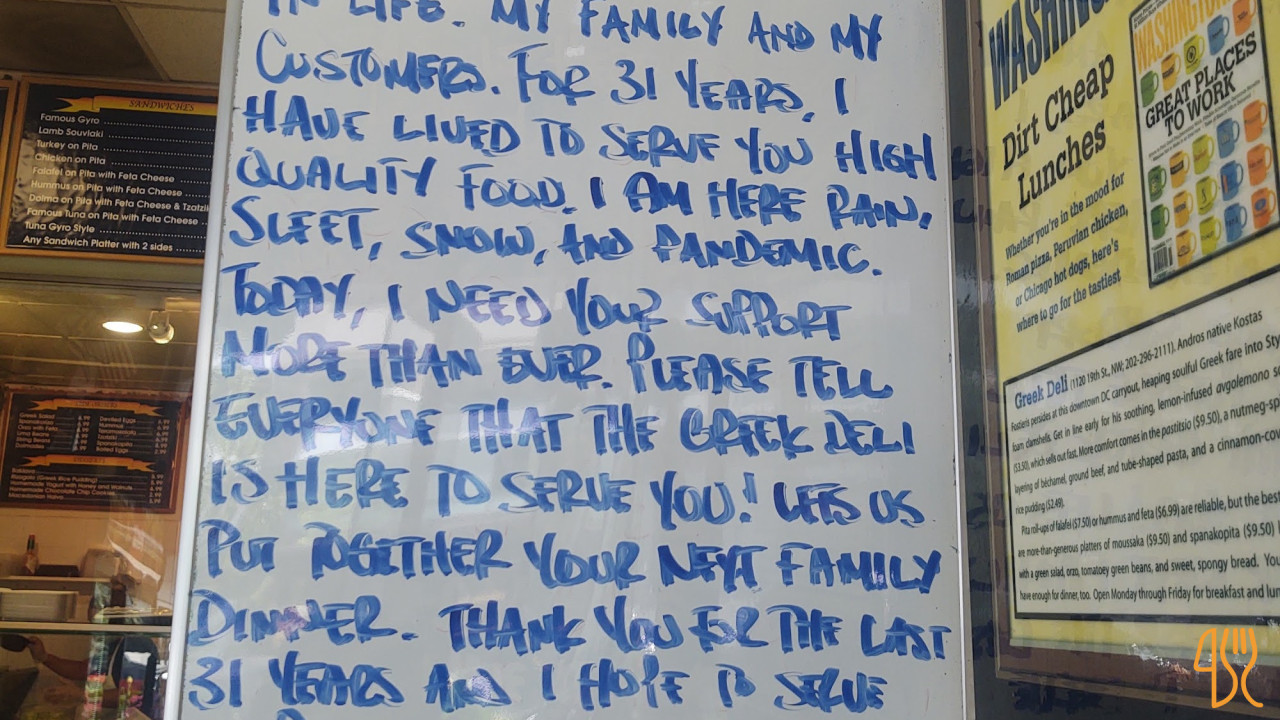 IN LIFE. MY FAMILY AND MY
CUSTOMERS. FOR 31 YEARS, I
HAVE LIVED TO SERVE YOU HIGH
QUALITY FOOD. I AM HERE RAIN,
SLEET, SNOW, AND PANDEMIC.
TODAY, I NEED YOUR SUPPORT
MORE THAN EVER. PLEASE TELL
EVERYONE THAT THE GREEK DELI
IS HERE TO SERVE YOU! LETS US
PUT TOGETHER YOUR NEXT FAMILY
DINNER. THANK YOU FOR THE LAST
31 YEARS AND I HOPE TO SERVE
SANDWICHES
Famous Gyro
Lamb Souvlaki
Turkey on Pita
Chicken on Pita
Falafel on Pita with Feta Cheese
Hummus on Pita with Feta Cheese
Dolma on Pita with Feta Cheese & Tzatziki
Famous Tuna on Pita with Feta Cheese
Tuna Gyro Style
Any Sandwich Platter with 2 sides
Greek Salad
Spanakopita
Lima Beans
Deviled Eggs
Hummus
DESSERTS
Baklava
Rizogalo (Greek Rice Pudding)
Homemade Yogurt with Honey and Walnuts
Homemade Chocolate Chip Cookies
WASHING
Dirt Cheap
Lunches
Whether you're in the mood for
Roman pizza, Peruvian chicken,
or Chicago hot dogs, here's
where to go for the tastiest
WASHINGTON
GREAT PLACES
TO WORK
Greek Deli (1120 19th St., NW; 202-296-2111). Andros native Kostas
Fostieris presides at this downtown DC carryout, heaping soulful Greek fare into Sty
foam clamshells. Get in line early for his soothing, lemon-infused avgolemono so
($3.50), which sells out fast. More comfort comes in the pastitsio ($9.50), a nutmeg-sp
layering of béchamel, ground beef, and tube-shaped pasta, and a cinnamon-cov
rice pudding ($2.49).
Pita roll-ups of falafel ($7.50) or hummus and feta ($6.99) are reliable, but the best
are more-than-generous platters of moussaka ($9.50) and spanakopita ($9.50)
with a green salad, orzo, tomatoey green beans, and sweet, spongy bread. You
have enough for dinner, too. Open Monday through Friday for breakfast and lun